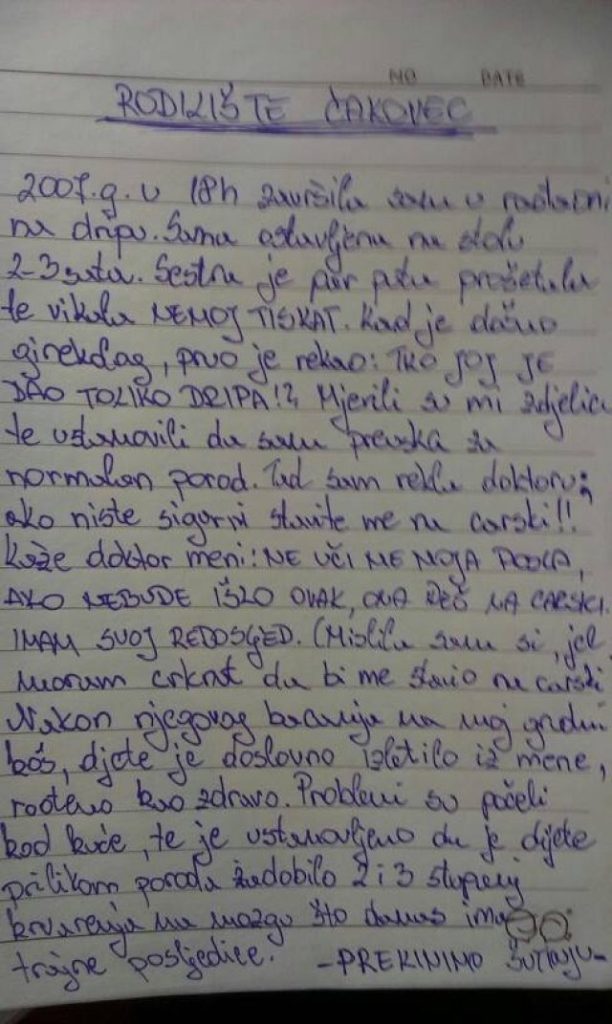 NO DATE
RODILIŠTE ČAKOVEC
2007.g. u 18h završila sam u rađaoni
na dripu. Sama ostavljena na stolu
2-3 sata. Sestra je par puta prošetala
te vikala NEMOJ TISKAT. Kad je došao
ginekolog, prvo je rekao: TKO JOJ JE
DAO TOLIKO DRIPA!? Mjerili su mi zdjelicu
te ustanovili da sam preuska za
normalan porod. Tad sam rekla doktoru:
ako niste sigurni stavite me na carski!!
Kaže doktor meni: NE UČI ME MOJA
AKO NEBUDE IŠLO OVAK, ONA ĆEŠ NA CARSKI.
IMAM SVOJ REDOSLJED. (Mislila sam si, jel
moram crknut da bi me stavio na carski
Nakon njegovog bacanja na moj grudni
koš, dijete je doslovno izletilo iz mene,
rođeno kao zdravo. Problemi su počeli
kod kuće, te je ustanovljeno da je dijete
prilikom poroda zadobilo 2 i 3 stupanj
krvarenja na mozgu što danas ima
trajne posljedice. -PREKINIMO ŠUTNJU-